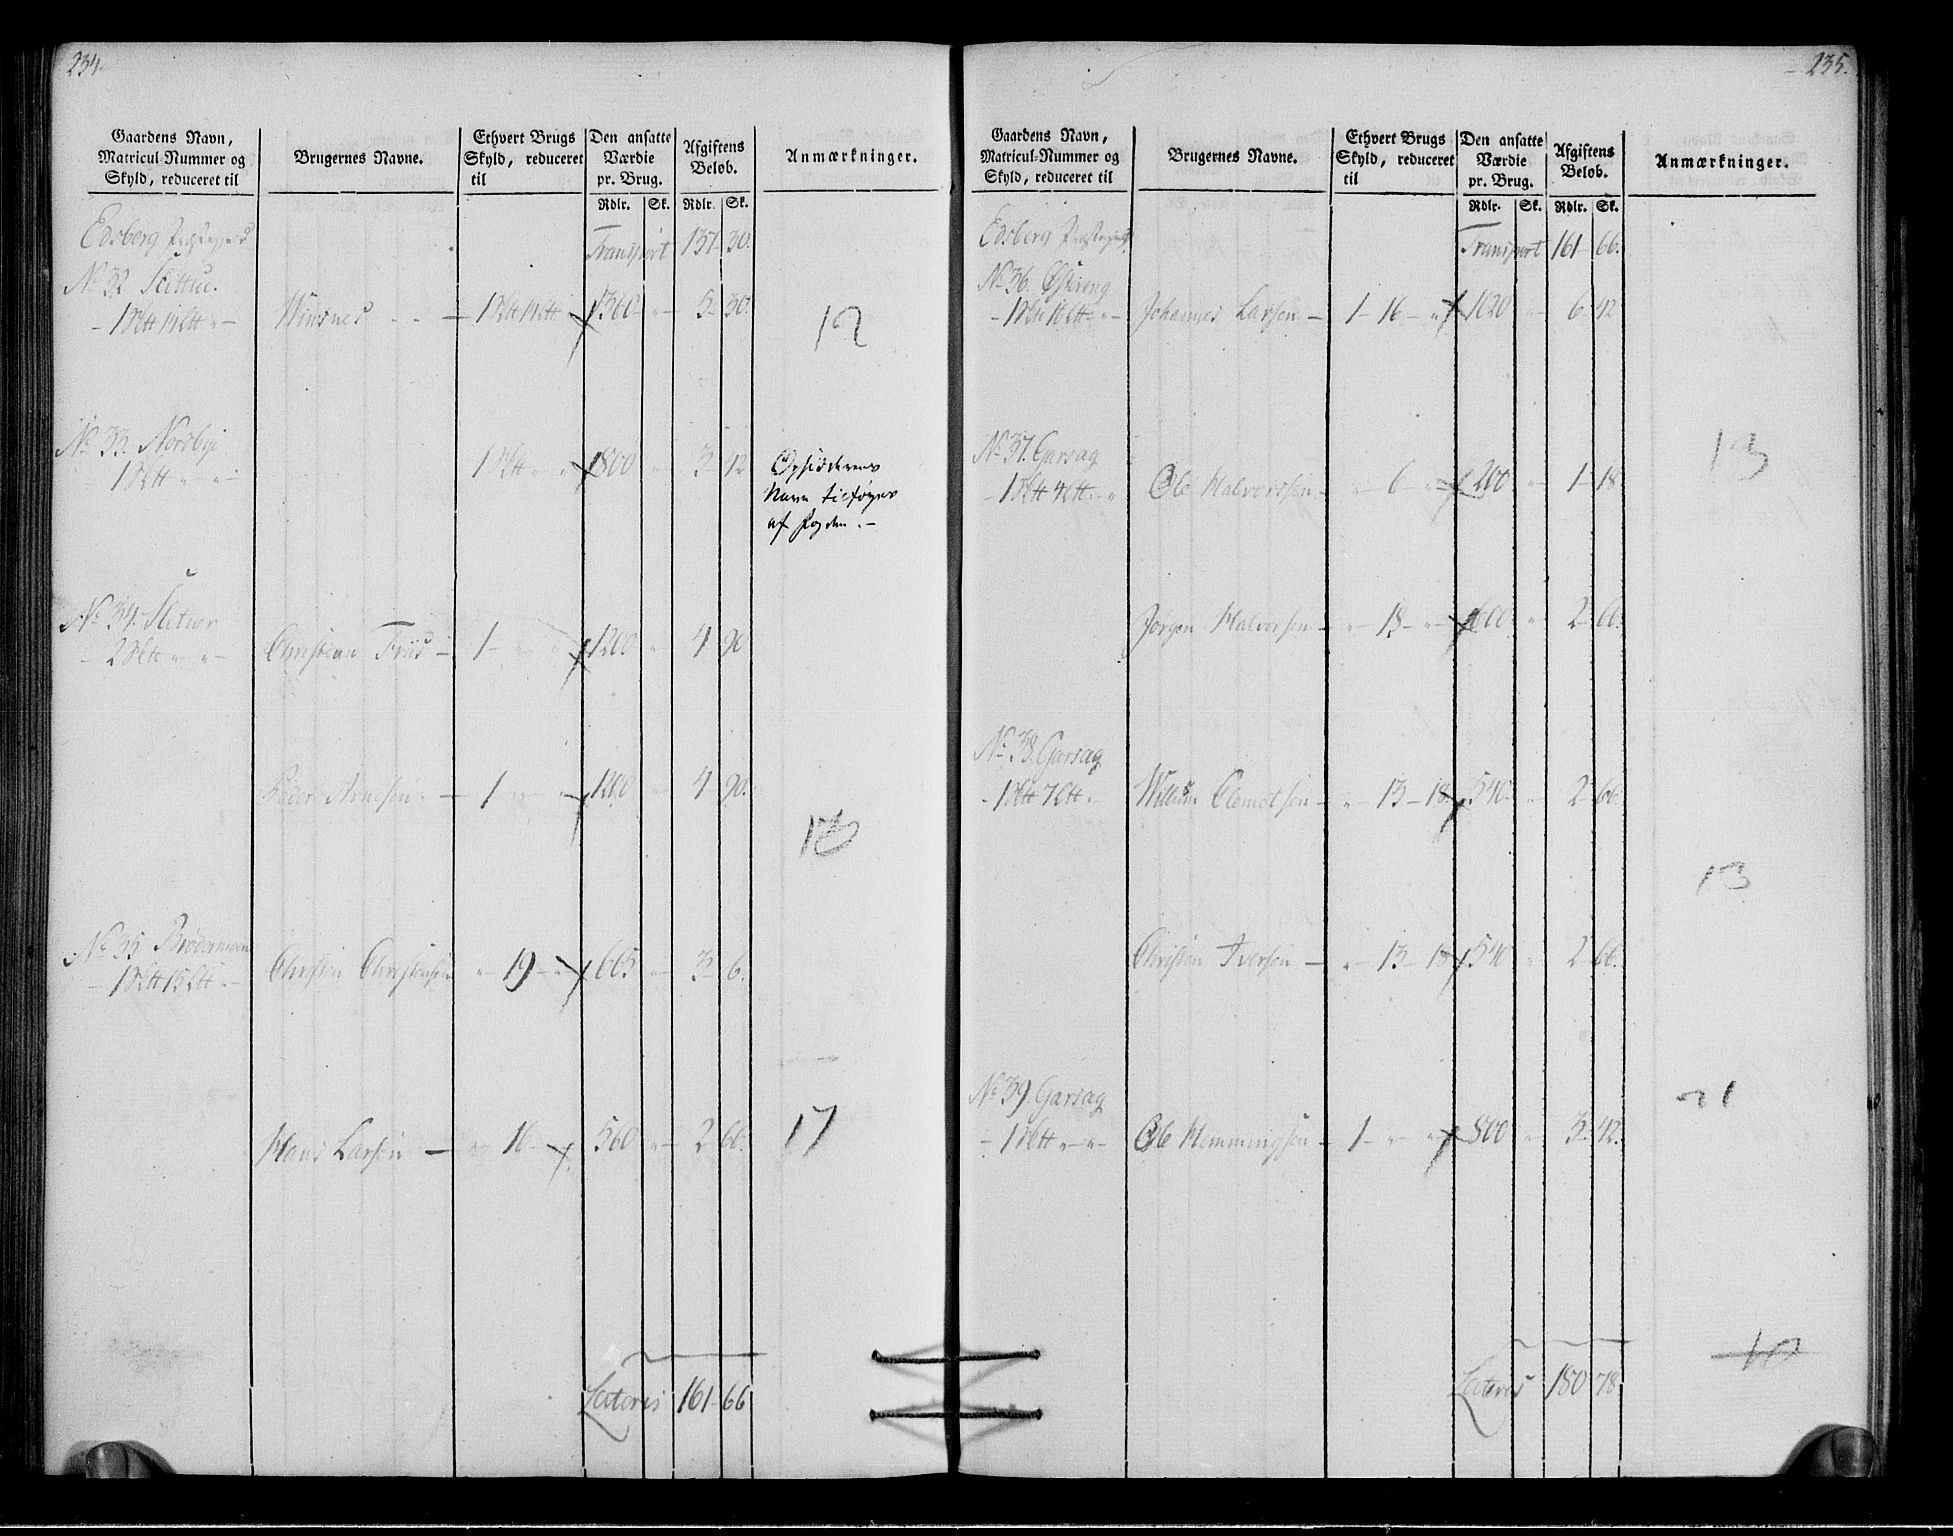 234.
Gaardens Navn,
Matricul-Nummer og
Skyld, reduceret til
Brugernes Navne.
Ethvert Brugs
Skyld, reduceret
til
Den ansatte
Værdie
pr. Brug.
Rdlr. Sk.
Afgiftens
Beløb.
Rdlr. Sk.
Anmærkninger.
Edsberg
Transport 137 30.
No 32
Winsnes 1360 5 30.
12
No 33. Nordbye
1800 3 42
Opsidderens
Navn tilføyes
af Fogden.
No 34. Sletner
Christian Friis 1 1200 4 90
Peder Arnesen 1 1200 4 90.
No 35 Brødermoen
Christen Christensen 19 665 3 6.
Hans Larsen 16 560 2 66.
17
Lateris 161 66
235.
Gaardens Navn,
Matricul-Nummer og
Skyld, reduceret til
Brugernes Navne.
Ethvert Brugs
Skyld, reduceret
til
Den ansatte
Værdie
pr. Brug.
Rdlr. Sk.
Afgiftens
Beløb.
Rdlr. Sk.
Anmærkninger.
Edsberg
Transport 161 66.
No 36. Østereng
Johannes Larsen 1 16 1620 6 42
No 37. Garsag
Ole Halvorsen 6 200 1 18.
13
Jørgen Halvorsen 18 600 2 66.
No 38. Garsag
Willum Clemetsen 13 18 540 2 66.
13
Christen Iversen 13 18 540 2 66.
No 39. Garsag
Ole Hemmingsen 1 800 3 42.
Lateris 180 78